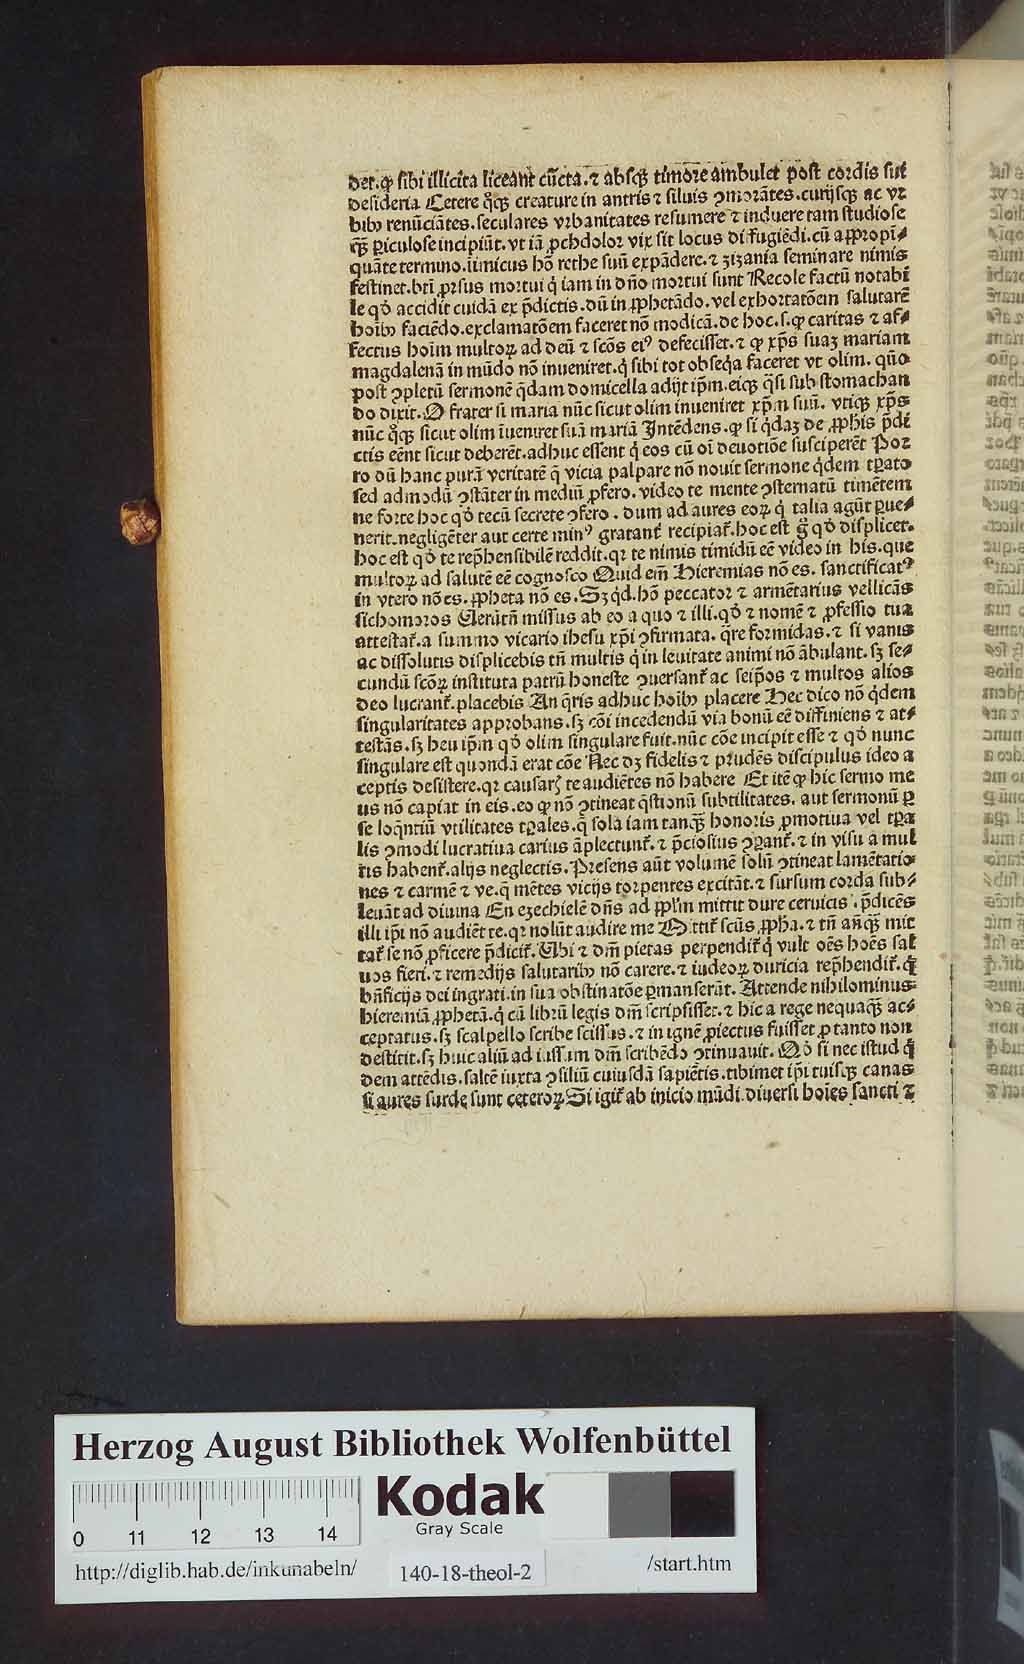 det. ꝙ sibi illicita liceant cūcta. ⁊ absqꝫ timore ambulet post cordis sui
desideria Cetere q̊qꝫ creature in antris ⁊ siluis ꝯmorātes. curijsqꝫ ac vr
bibꝰ renūciātes. seculares vrbanitates resumere ⁊ induere tam studiose
qꝫ̄ ꝑiculose incipiūt. vt iā ꝓchdolor vix sit locus diffugiēdi. cū appropī⸗
quāte termino. inimicus hō rethe suū expādere. ⁊ zizania seminare nimis
festinet. btī ꝓrsus mortui q̇ iam in dn̄o mortui sunt Recole factū notabi
le qd̛ accidit cuidā ex p̄dictis. dū in ꝓphetādo. vel exhortatōem salutarē
hoibꝰ faciēdo. exclamatōem faceret nō modicā. de hoc. s. ꝙ caritas ⁊ af⸗
fectus hoīm multoꝝ ad deū ⁊ scōs eiꝰ defecisset. ⁊ ꝙ xp̄s suaꝫ mariam
magdalenā in mūdo nō inueniret. q̇ sibi tot obseq̇a faceret vt olim. quō
post ꝯpletū sermonē q̄dam domicella adijt ip̄m. eiqꝫ q̄si sub stomachan
do dixit. O frater si maria nūc sicut olim inueniret xp̄m suū. vtiqꝫ xp̄s
nūc q̊qꝫ sicut olim īueniret suā mariā Intēdens. ꝙ si q̇daꝫ de ꝓphis p̄di
ctis eēnt sicut deberēt. adhuc essent q̇ eos cū oī deuotiōe susciperēt Por
ro dū hanc purā veritatē q̄ vicia palpare nō nouit sermone q̇dem tꝑato
sed admodū ꝯstāter in mediū ꝓfero. video te mente ꝯsternatū timētem
ne forte hoc qd̛ tecū secrete ꝯfero. dum ad aures eoꝝ q̇ talia agūt ꝑue⸗
nerit. negligēter aut certe minꝰ gratant̛ recipiat̛. hoc est g̊ qd̛ displicet.
hoc est qd̛ te rep̄hensibilē reddit. qꝛ te nimis timidū eē video in his. que
multoꝝ ad salutē eē cognosco Quid em̄ Hieremias nō es. sanctificatꝰ
in vtero nō es. ꝓpheta nō es. Sꝫ qd̛. hō peccator ⁊ armētarius vellicās
sichomoros Verūtn̄ missus ab eo a quo ⁊ illi. qd̛ ⁊ nomē ⁊ ꝓfessio tua
attestat̛. a summo vicario ihesu xp̄i ꝯfirmata. q̄re formidas. ⁊ si vanis
ac dissolutis displicebis tn̄ multis q̇ in leuitate animi nō ābulant. sꝫ se⸗
cundū scōꝝ instituta patrū honeste ꝯuersant̛ ac seip̄os ⁊ multos alios
deo lucrant̛. placebis An q̄ris adhuc hoibꝰ placere Hec dico nō q̇dem
singularitates approbans. sꝫ cōi incedendū via bonū eē diffiniens ⁊ at⸗
testās. sꝫ heu ip̄m qd̛ olim singulare fuit. nūc cōe incipit esse ⁊ qd̛ nunc
singulare est quondā erat cōe Nec dꝫ fidelis ⁊ prudēs discipulus ideo a
ceptis desistere. qꝛ causat̛ te audiētes nō habere Et itē ꝙ hic sermo me
us nō capiat in eis. eo ꝙ nō ꝯtineat q̄stionū subtilitates. aut sermonū ꝑ
se loq̄ntiū vtilitates tꝑales. q̄ sola iam tanqꝫ̄ honoris ꝓmotiua vel tꝑa
lis ꝯmodi lucratiua carius āplectunt̛. ⁊ p̄ciosius ꝯꝑant̛. ⁊ in visu a mul
tis habent̛. alijs neglectis. Presens aūt volumē solū ꝯtineat lamētatio
nes ⁊ carmē ⁊ ve. q̄ mētes vicijs torpentes excitāt. ⁊ sursum corda sub⸗
leuāt ad diuina En ezechielē dn̄s ad ppl̄m mittit dure ceruicis. p̄dicēs
illi ip̄i nō audiēt te. qꝛ nolūt audire me Mittit̛ scūs ꝓpha. ⁊ tn̄ anqꝫ̄ mit
tat̛ se nō ꝓficere p̄dicit̛. Vbi ⁊ dm̄ pietas perpendit̛ q̇ vult oēs hoēs sal
uos fieri. ⁊ remedijs salutaribꝰ nō carere. ⁊ iudeoꝝ duricia rep̄hendit̛. q̇
bn̄ficijs dei ingrati. in sua obstinatōe ꝑmanserāt. Attende nihilominus
hieremiā ꝓphetā. q̇ cū librū legis dm̄ scripsisset. ⁊ hic a rege nequaqꝫ̄ ac⸗
ceptatus. sꝫ scalpello scribe scissus. ⁊ in ignē ꝓiectus fuisset ꝓ tanto non
destitit. sꝫ huic aliū ad iussum dm̄ scribēdo ꝯtinuauit. Qd̛ si nec istud q̇
dem attēdis. saltē iuxta ꝯsiliū cuiusdā sapiētis. tibimet ip̄i tuisqꝫ canas
si aures surde sunt ceteroꝝ Si igit̛ ab inicio mūdi. diuersi hoīes sancti ⁊
Herzog August Bibliothek Wolfenbüttel
Kodak
Gray Scale
0 11 12 13 14
http://diglib.hab.de/inkunabeln/
140-18-theol-2
/start.htm